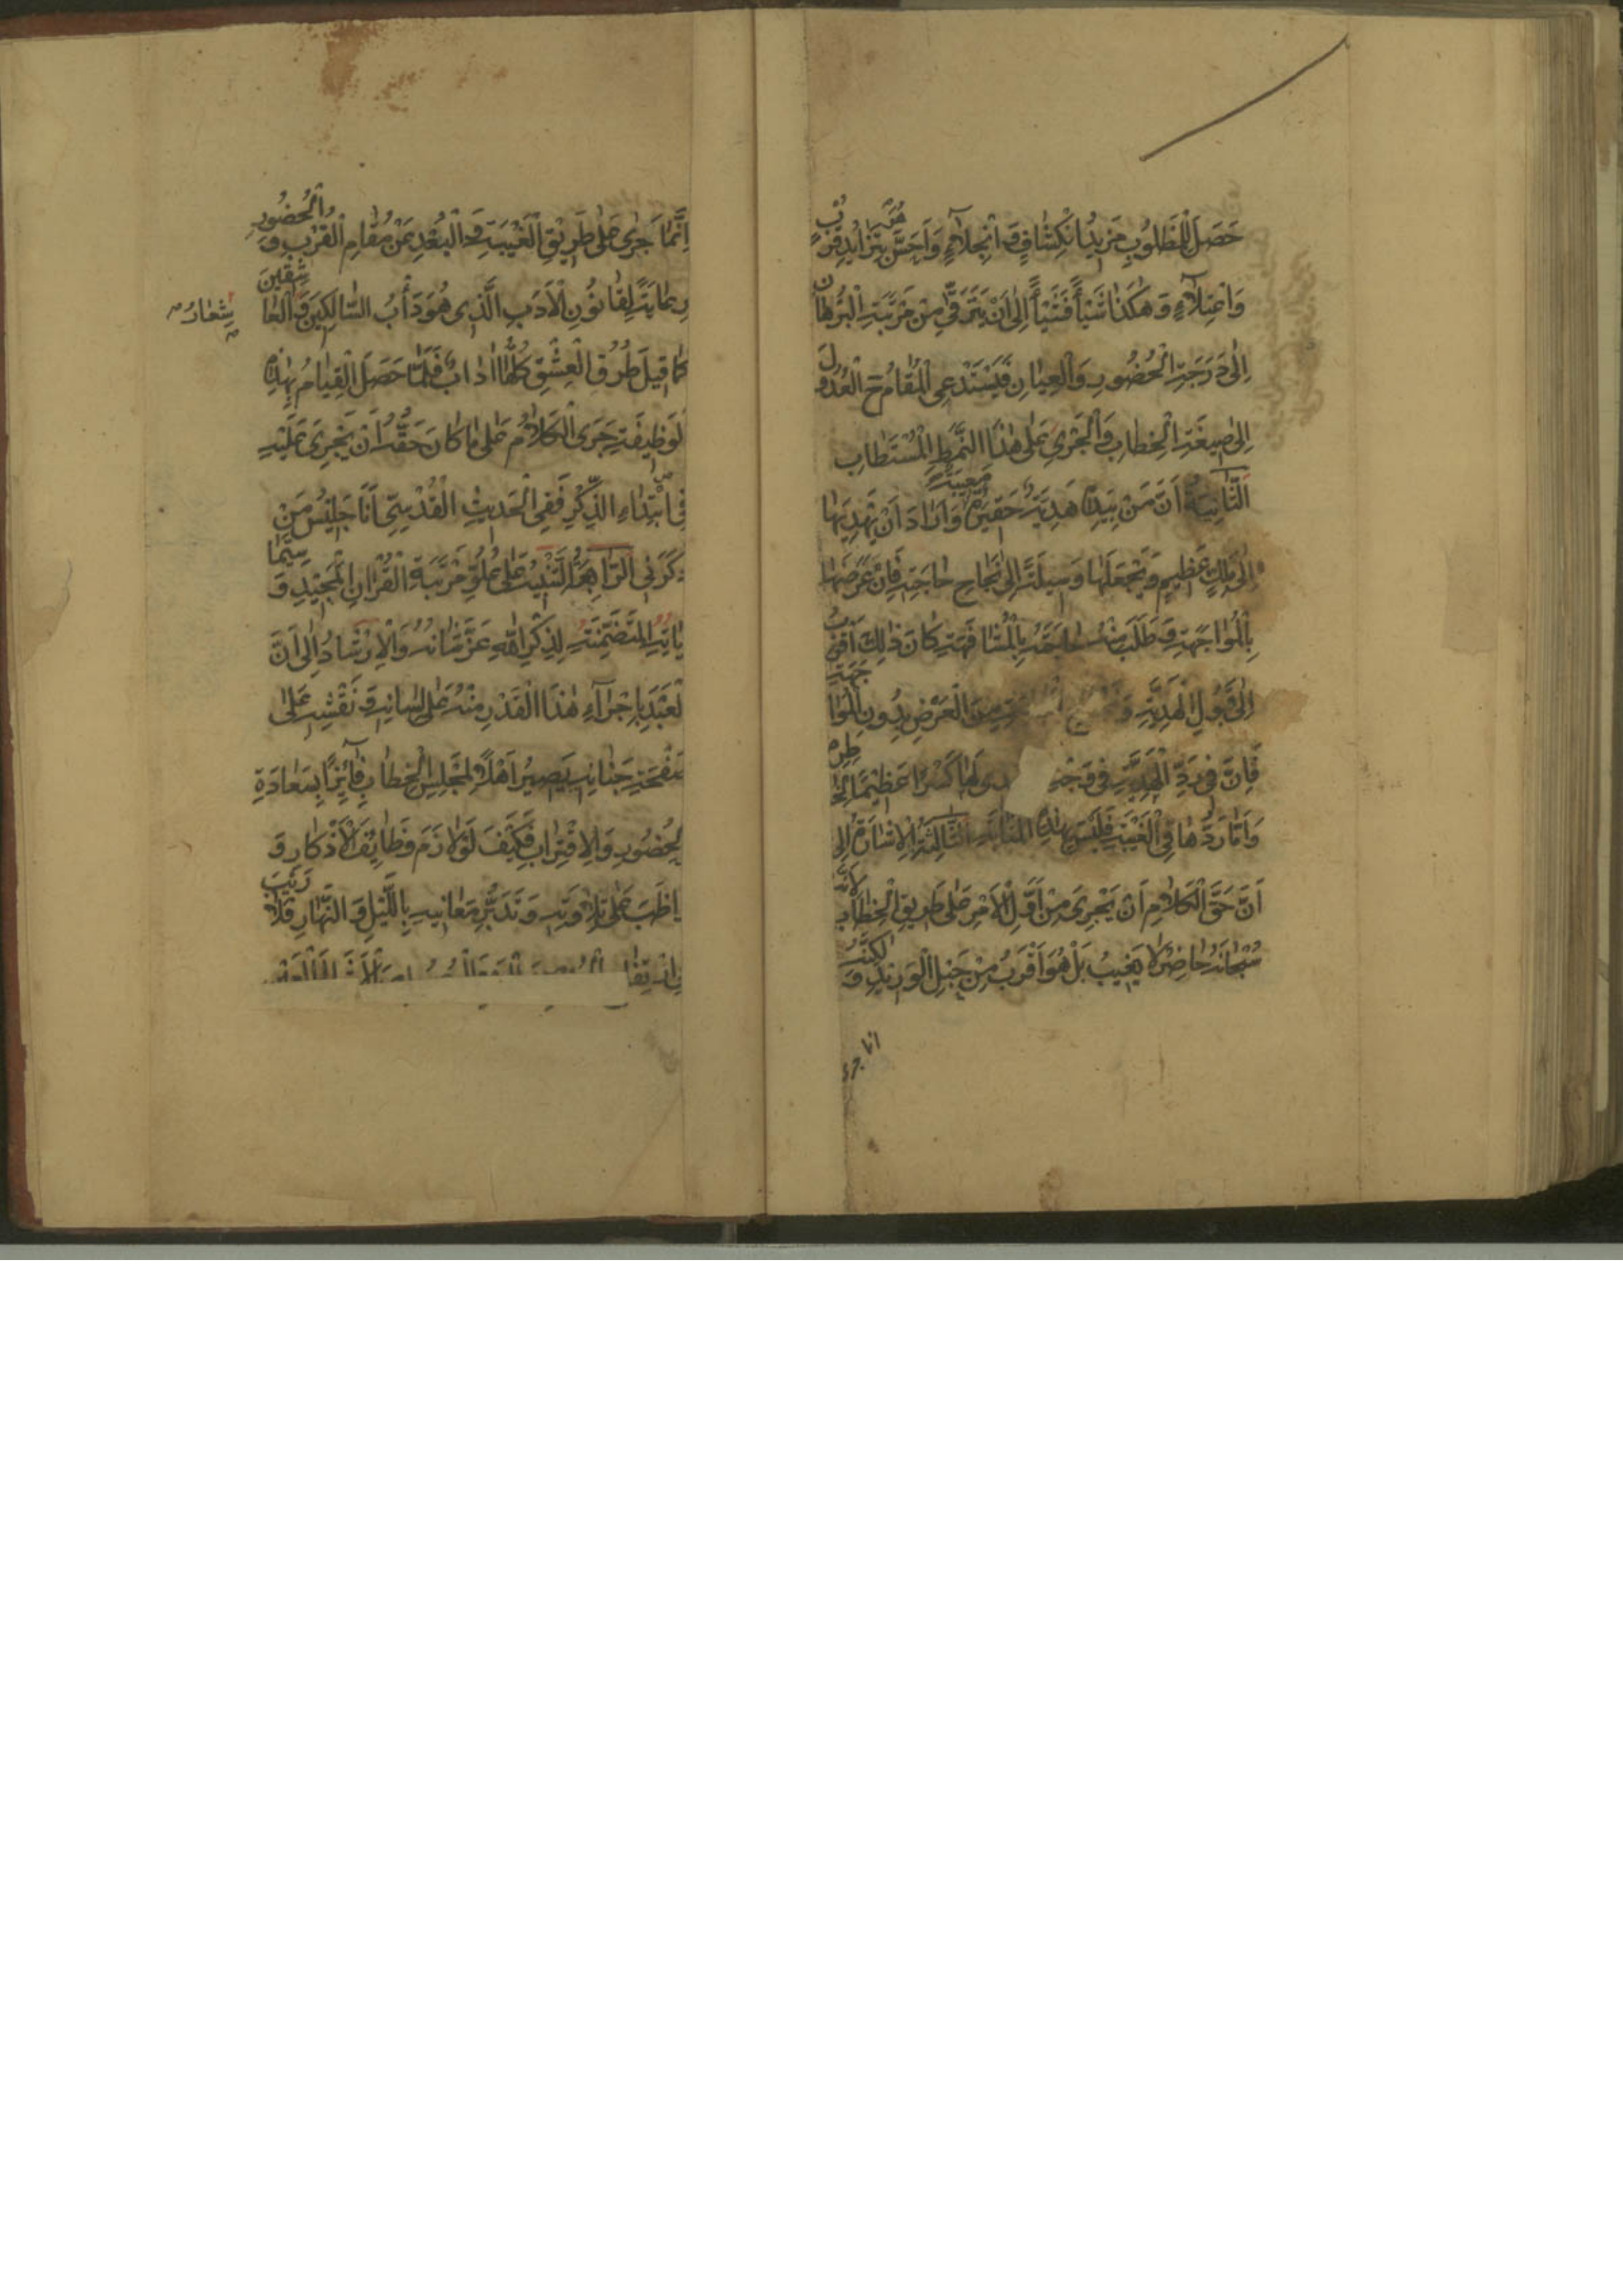 حَصَلَ لِلْمَطْلُوبِ مَزِيدُ انْكِشَافٍ وَ انْجِلَآءٍ وَاَحَسَّ بِتَزَايُدِ قُرْبٍ
وَاعْتِلَآءٍ وَ هٰكَذَا شَيْأً فَشَيْأً اِلٰى اَنْ يَتَرَقّٰى مِنْ مَرْتَبَةِ الْبُرْهَانِ
اِلٰى دَرَجَةِ الْحُضُورِ وَالْعِيَانِ فَيَسْتَدْعِى الْمَقَامُ ح الْعُدُولَ
اِلٰى صِيغَةِ الْخِطَابِ وَالْجَرْىِ عَلٰى هٰذَا النَّمَطِ الْمُسْتَطَابِ
الثَّانِيَةُ اَنَّ مَنْ بِيَدِهِ هَدِيَّةٌ حَقِيرَةٌ مَعِيبَةٌ وَ اَرَادَ اَنْ يُهْدِيَهَا
اِلٰى مَلِكٍ عَظِيمٍ وَ يَجْعَلَهَا وَسِيلَةً اِلٰى نَجَاحِ حَاجَتِهِ فَاِنْ عَرَضَهَا
بِالْمُوَاجَهَةِ وَ طَلَبَ مِنْهُ حَاجَتَهُ بِالْمُشَافَهَةِ كَانَ ذٰلِكَ اَقْرَبَ
اِلٰى قَبُولِ الْهَدِيَّةِ وَ مِنَ الْعَرْضِ بِدُونِ الْمُوَاجَهَةِ
فَاِنَّ فِى رَدِّ الْهَدِيَّةِ فِى وَجْهِ لَهَا كَسْرًا عَظِيمًا لِخَاطِرِهِ
وَ اَمَّا رَدُّهَا فِى الْغَيْبَةِ فَلَيْسَ بِهٰذِهِ الْمَثَابَةِ الثَّالِثَةُ الْاِشَارَةُ اِلٰى
اَنَّ حَقَّ الْكَلَامِ اَنْ يَجْرِىَ مِنْ اَوَّلِ الْاَمْرِ عَلٰى طَرِيقِ الْخِطَابِ لِاَنَّهُ
سُبْحَانَهُ حَاضِرٌ لَا يَغِيبُ بَلْ هُوَ اَقْرَبُ مِنْ حَبْلِ الْوَرِيدِ وَ لٰكِنَّهُ
انما جرى
اِنَّمَا جَرٰى عَلٰى طَرِيقِ الْغَيْبَةِ وَ الْبُعْدِ عَنْ مَقَامِ الْقُرْبِ وَ الْحُضُورِ
رِعَايَةً لِقَانُونِ الْاَدَبِ الَّذِى هُوَ دَأْبُ السَّالِكِينَ وَ الْعَاشِقِينَ
شِعَارُ
كَمَا قِيلَ طُرُقُ الْعِشْقِ كُلُّهَا اٰدَابٌ فَلَمَّا حَصَلَ الْقِيَامُ بِهٰذِهِ
الْوَظِيفَةِ جَرَى الْكَلَامُ عَلٰى مَا كَانَ حَقُّهُ اَنْ يَجْرِىَ عَلَيْهِ
فِى ابْتِدَاءِ الذِّكْرِ فَفِى الْحَدِيثِ الْقُدْسِىِّ اَنَا جَلِيسُ مَنْ
ذَكَرَنِى الرَّابِعَةُ التَّنْبِيهُ عَلٰى عُلُوِّ مَرْتَبَةِ الْقُرْاٰنِ الْمَجِيدِ وَ سِيَّمَا
اٰيَاتِهِ الْمُتَضَمِّنَةِ لِذِكْرِ اللّٰهِ عَزَّ شَانُهُ وَالْاِرْشَادُ اِلٰى اَنَّ
الْعَبْدَ بِاِجْرَآءِ هٰذَا الْقَدْرِ مِنْهُ عَلٰى لِسَانِهِ وَ نَقْشِهِ عَلٰى
صَفْحَةِ جَنَانِهِ يَصِيرُ اَهْلًا لِمَجْلِسِ الْخِطَابِ فَآئِزًا بِسَعَادَةِ
الْحُضُورِ وَالِاقْتِرَابِ فَكَيْفَ لَوْ لَازَمَ وَظَائِفَ الْاَذْكَارِ وَ
وَاظَبَ عَلٰى تِلَاوَتِهِ وَ تَدَبُّرِ مَعَانِيهِ بِاللَّيْلِ وَ النَّهَارِ فَلَا رَيْبَ